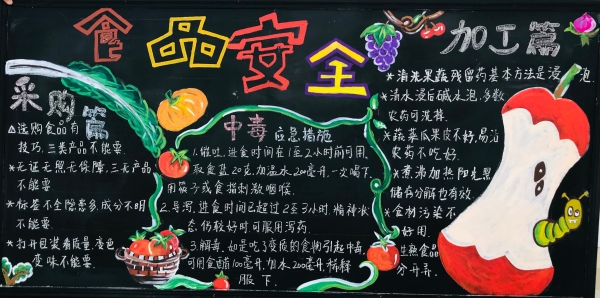 食品安全
采购篇
△选购食品有
技巧,三类产品不能要
*无证无照无保障,三无产品
不能要
*标签不全隐患多,成分不明
不能要.
*打开包装看质量,变色
变味不能要.
中毒应急措施
1.催吐,进食时间在1至2小时前可用,
取食盐20克,加温水200毫升,一次喝下
用筷子或食指刺激咽喉.
2.导泻,进食时间已超过2至3小时,精神状
态仍较好时可服用泻药.
3.解毒,如是吃了变质的食物引起中毒
可用食醋100毫升,加水200毫升,稀释
服下.
加工篇
*清洗果蔬残留药基本方法是浸泡.
*清水浸后碱水泡,多数
农药可洗掉.
*蔬菜瓜果皮不好,易沾
农药不吃好.
*煮添加热阳光照
储存分解也有效.
*食材污染不
好用.
生熟食品
分开弄.